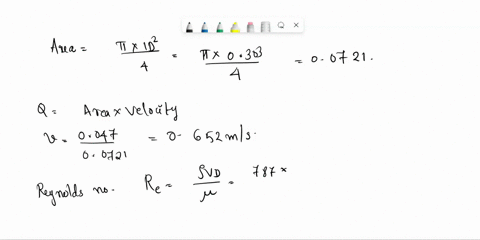 Area = π × ID² / 4 = π × 0.303 / 4 = 0.0721.
Q = Area × Velocity
V = 0.047 / 0.0721 = 0.652 m/s.
Reynolds no. Re = ρVD / μ = 787 ×